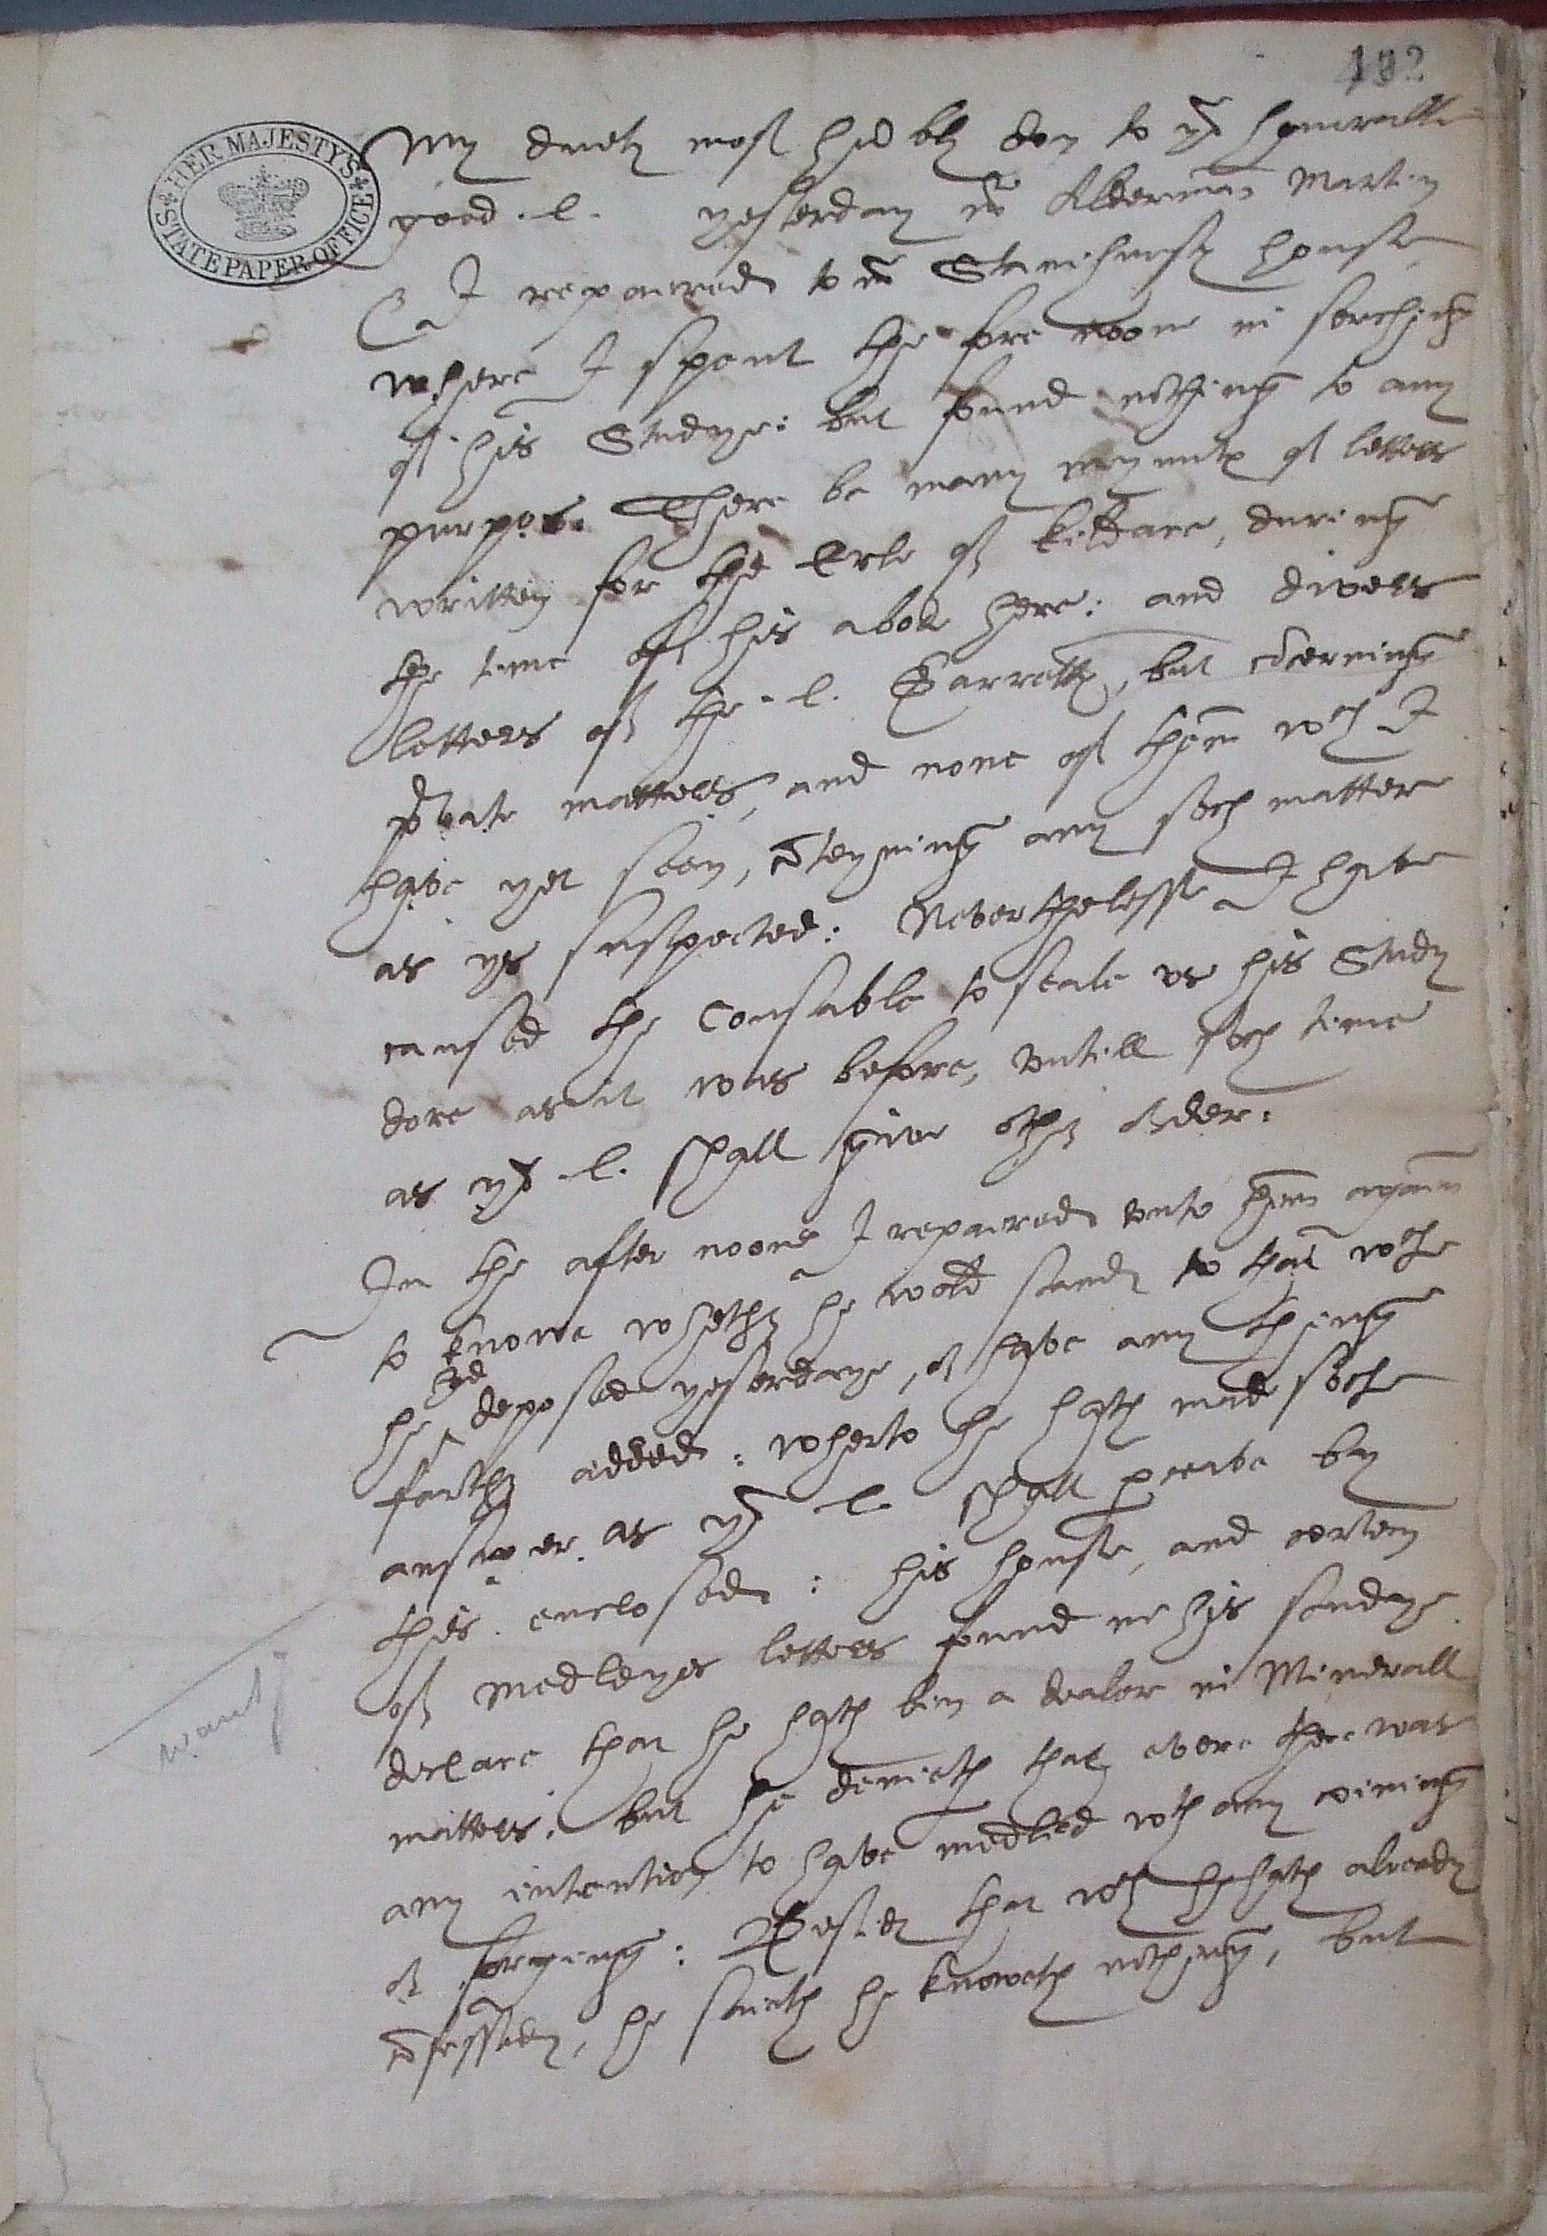 192
HER MAJESTY'S STATE PAPER OFFICE
My duety most hũbly don to yor honorable
good .l. yesterday mr Alderman Martin
& I repaired to mr Stanihursts house
where I spent the fore noone in serching
of his Studye: but found nothing to any
purpos. There be many mynuts of letters
written for the Erle of Kildare, during
the time of his abode here: and divers
letters of the .l. Garretts, but cõcerning
pryvate matters, and none of them wch I
have yet seen, cõteyning any soch matter
as ys suspected: Neverthelesse I have
caused the Constable to seale up his Study
dore as it was before, untill soch time
as yor .l. shall give other order:
In the after noone I repaired unto him again
to knowe whether he wold stand to that wche
he had deposed yesterdaye, or have any thing
farther added: wherto he hath made soche
answer as yor .l. shall perceive by
this enclosed: his house, and certein
of medleyes letters found in his studye
declare that he hath bin a dealer in Minerall
matters, but he denieth that ever there was
any intention to have medled wth any coining
or forging: Beside that wch he hath already
cõfessed, he saieth he knoweth nothing, but
wants